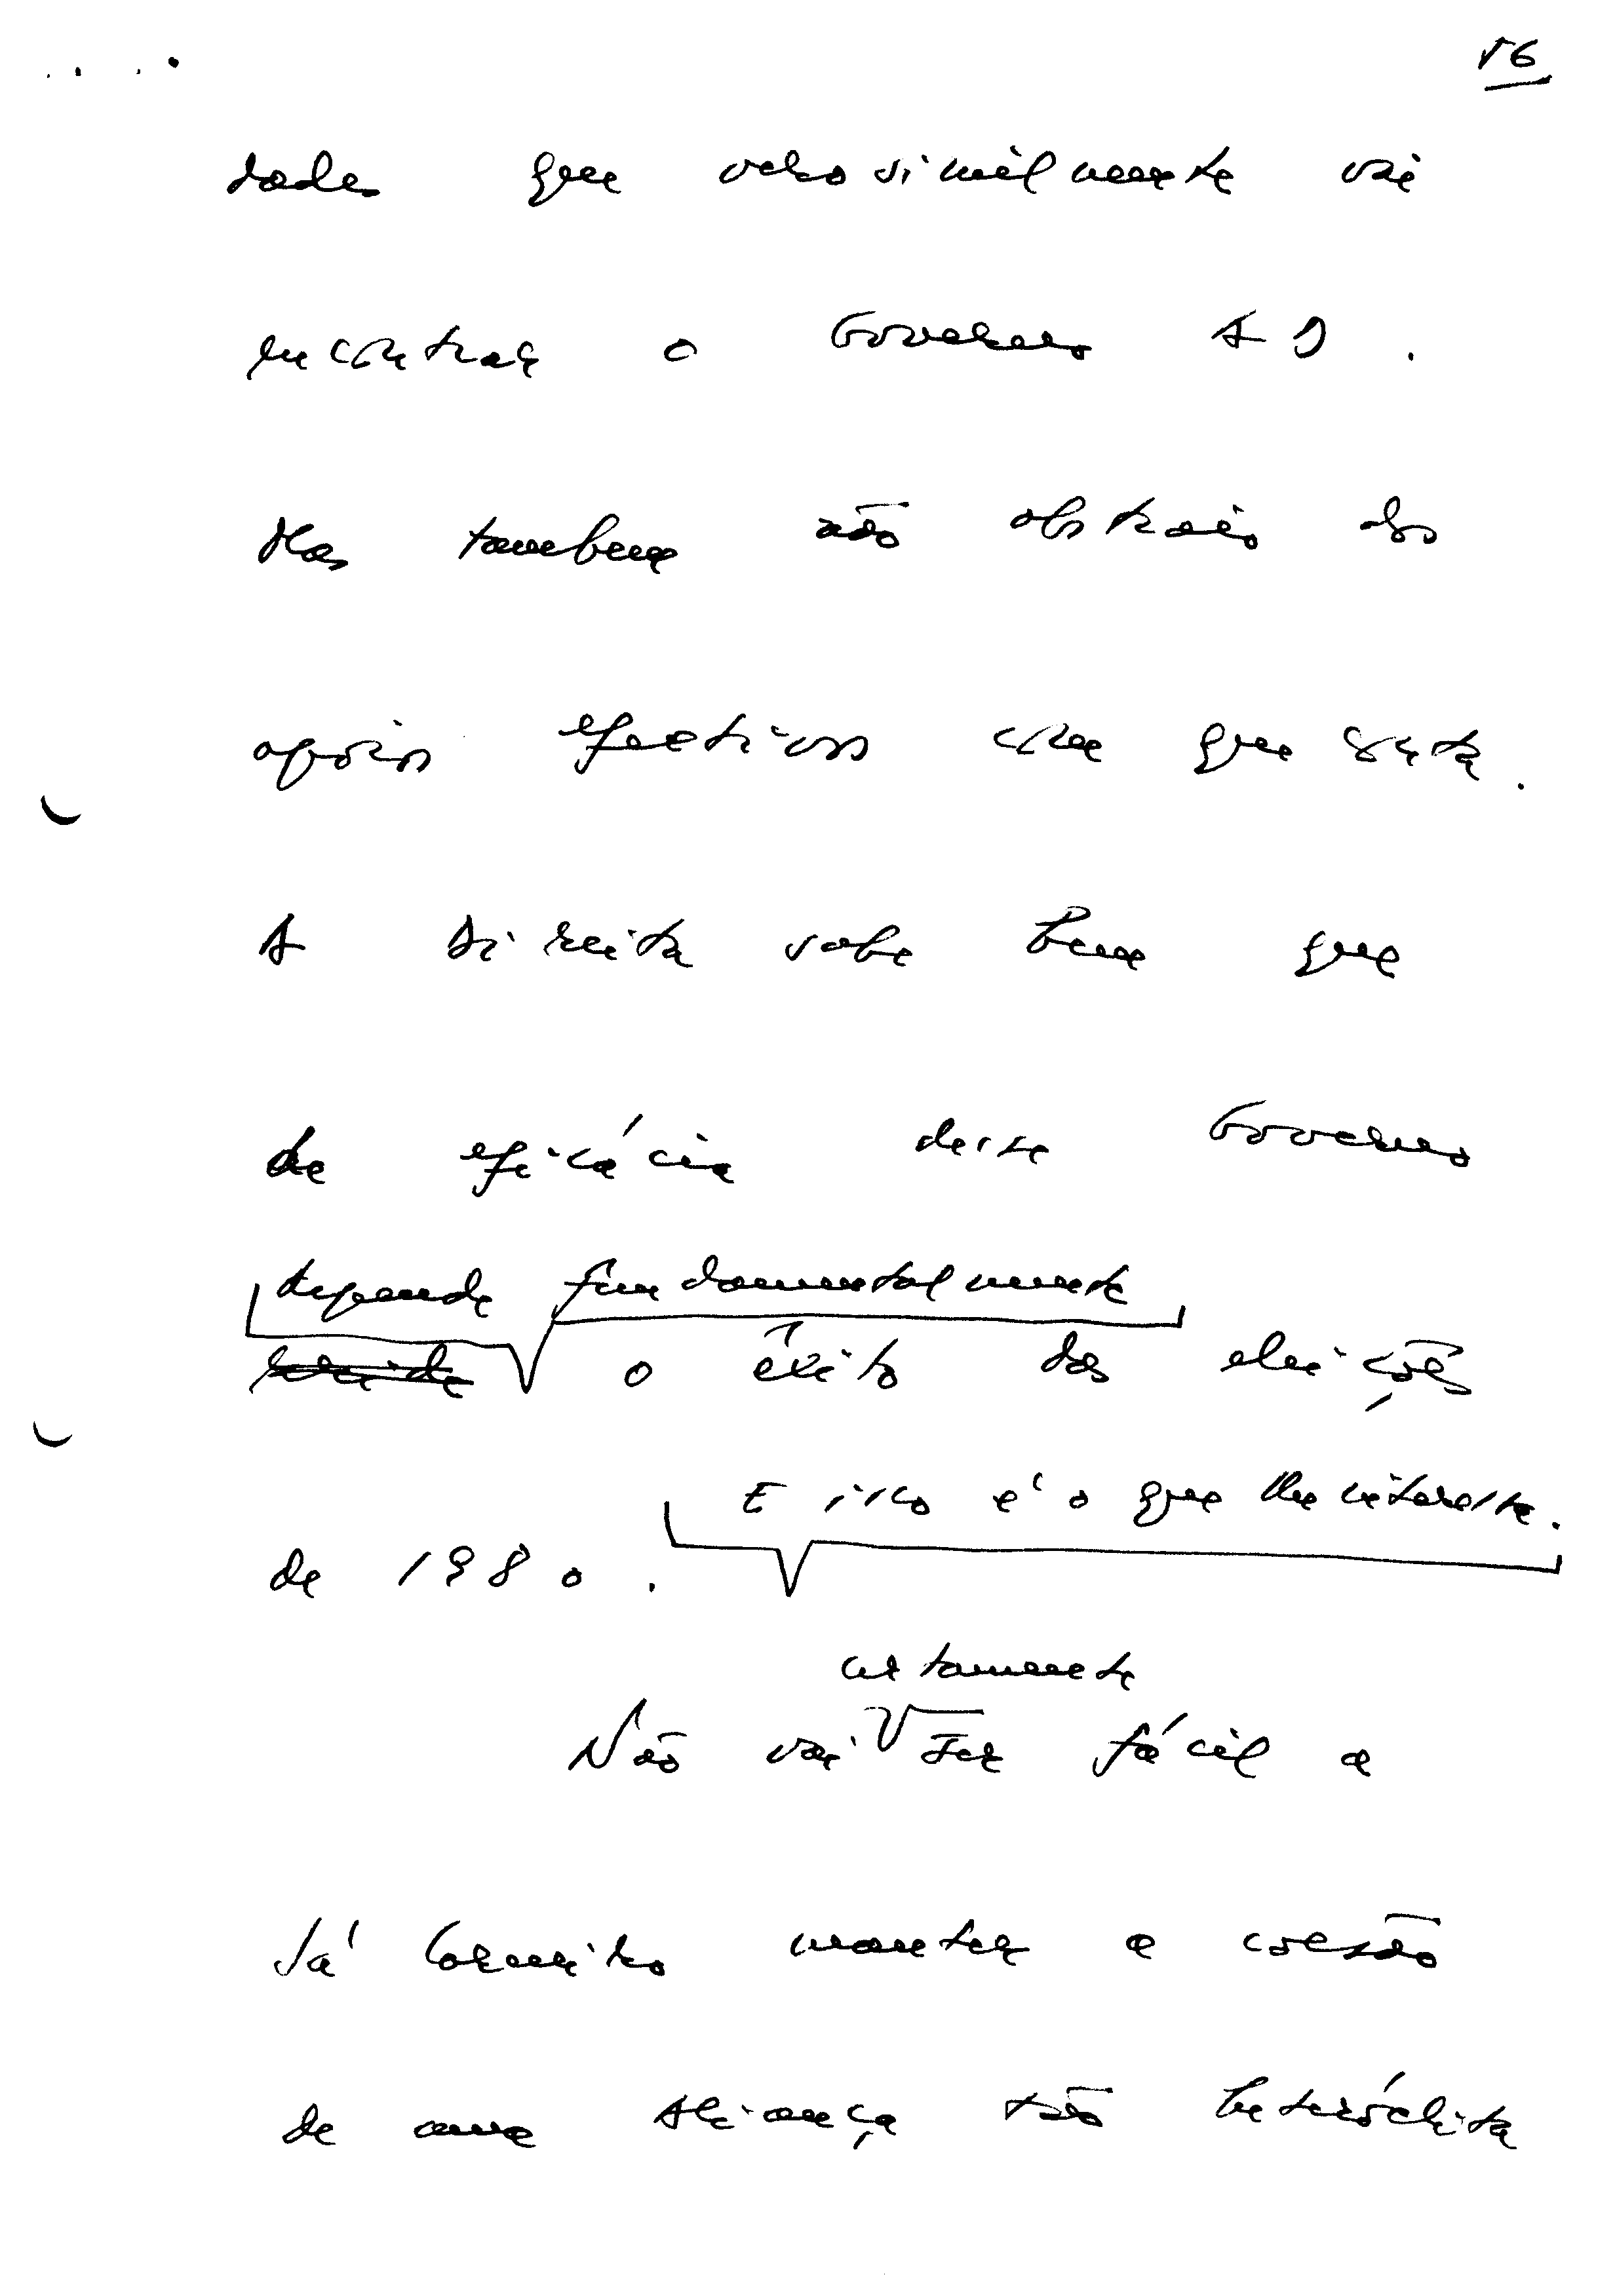 56
dades que verosimilmente vai
encontrar o Governo AD.
Mas também não obstais os
apoios efectivos com que conta.
A direita sabe bem que
da eficácia desse Governo
depende fundamentalmente
o êxito das eleições
E isso é o que lhe interessa.
de 1980.
certamente
Não vai ser fácil a
Sá Carneiro manter a coesão
de uma aliança tão heteróclita